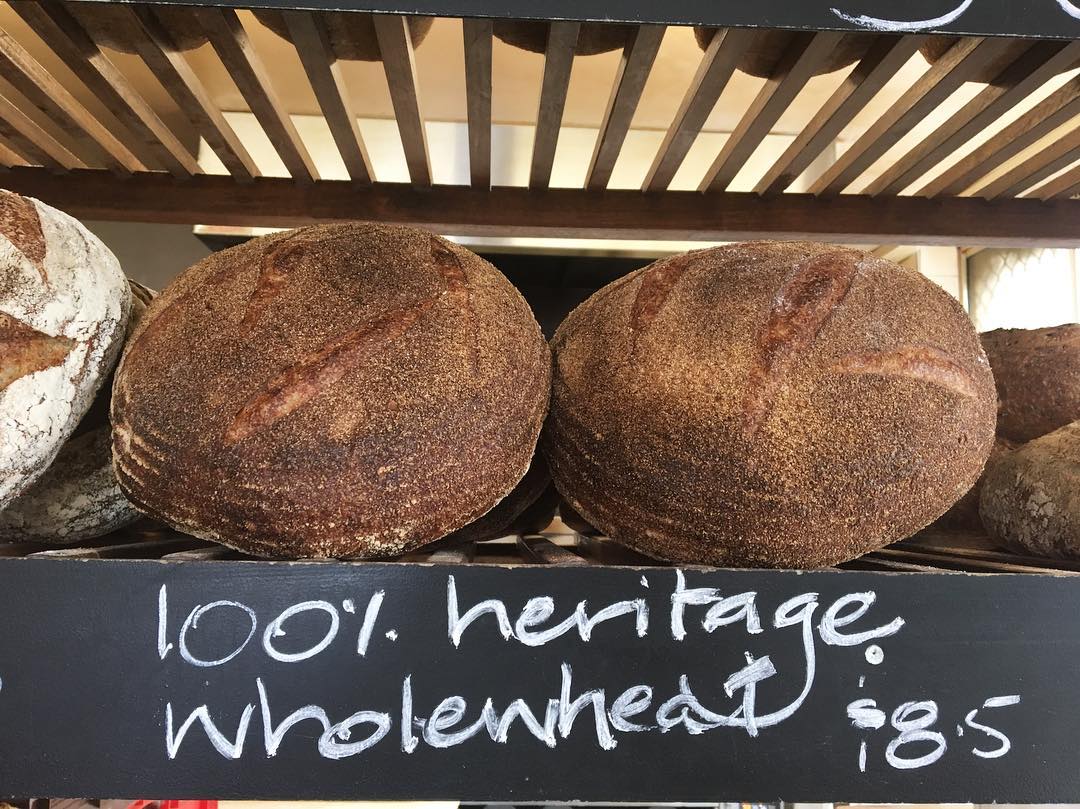 100% heritage
wholewheat $8.5